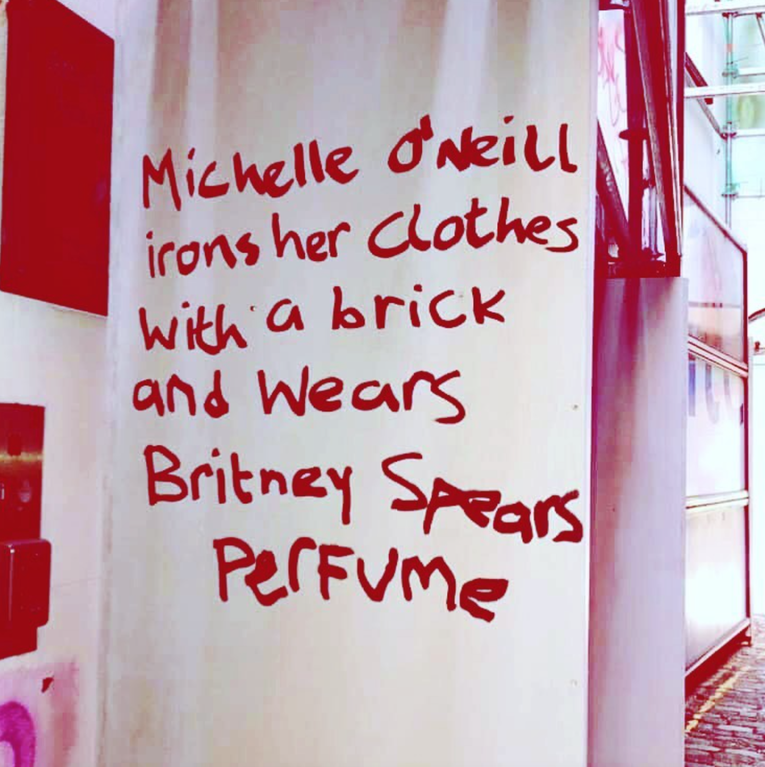 Michelle O'Neill
irons her clothes
with a brick
and wears
Britney Spears
Perfume